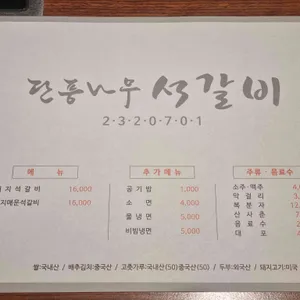 단풍나무 석갈비
2·3·2·0·7·0·1
메 뉴
지석갈비 16,000
지매운석갈비 16,000
추가메뉴
공기밥 1,000
소면 4,000
물냉면 5,000
비빔냉면 5,000
주류·음료수
소주·맥주
막걸리
복분자
산사춘
음료수
대포
쌀:국내산 / 배추김치:중국산 / 고춧가루:국내산(50)중국산(50) / 두부:외국산 / 돼지고기:미국